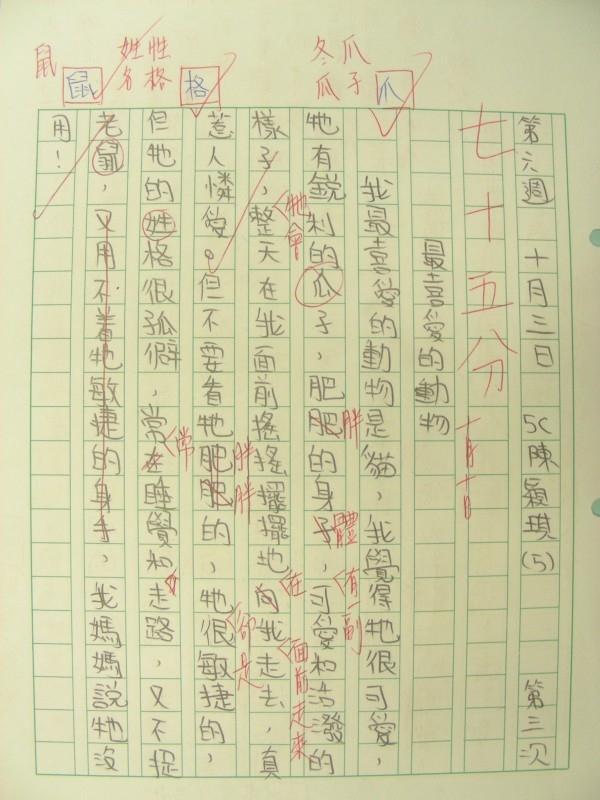 第六週 十月三日 5C陳穎琪(5) 第三次
七十五分 十月十日
最喜愛的動物
我最喜愛的動物是貓，我覺得牠很可愛，
牠有銳利的瓜子，肥肥的身子，可愛和活潑的
樣子，整天在我面前搖搖擺擺地向我走去，真
惹人憐愛。但不要看牠肥肥的，牠很敏捷的，
但牠的姓格很孤僻，常在睡覺和走路，又不捉
老鼠，又用不着牠敏捷的身手，我媽媽說牠沒
用！
冬瓜
瓜子
爪
姓性
名格
格
鼠
鼠
胖
體
有一副
牠會
在
面前走來
胖胖
卻是
常